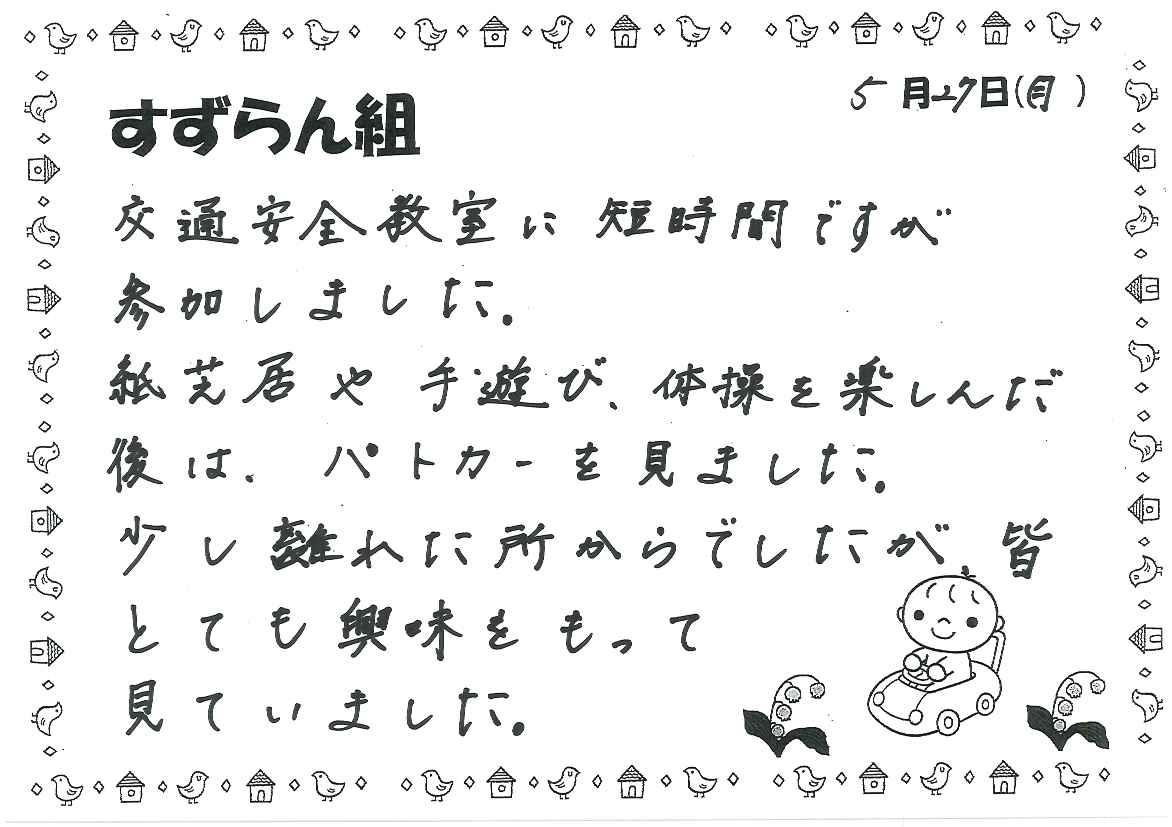 5月27日(月)
すずらん組
交通安全教室に短時間ですが
参加しました。
紙芝居や手遊び、体操を楽しんだ
後は、パトカーを見ました。
少し離れた所からでしたが皆
とても興味をもって
見ていました。